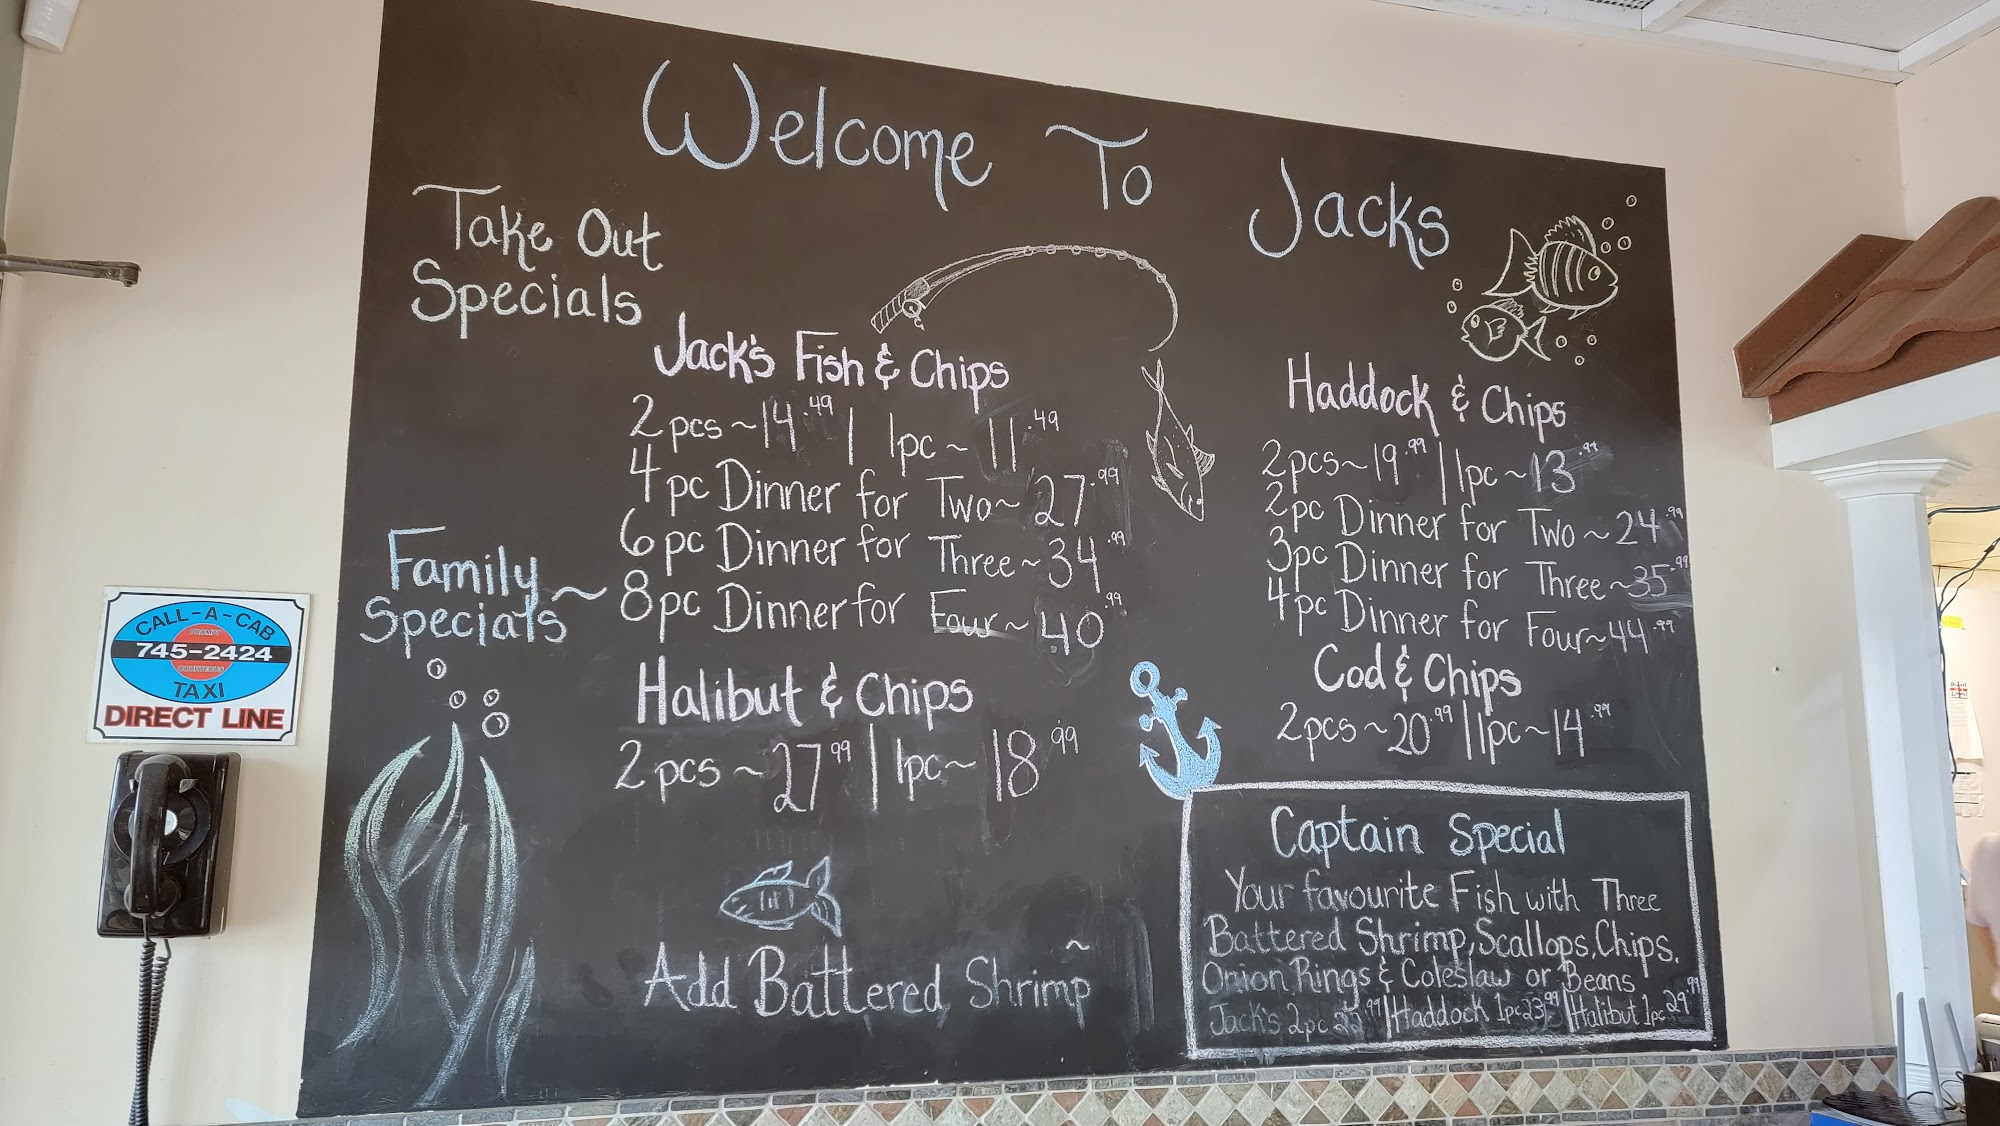 Welcome To Jacks
Take Out
Specials
Jack's Fish & Chips
2 pcs ~ 14.49 | 1pc ~ 11.49
4 pc Dinner for Two ~ 27.99
6 pc Dinner for Three ~ 34.99
8 pc Dinner for Four ~ 40.99
Family ~
Specials
Halibut & Chips
2 pcs ~ 27.99 | 1pc ~ 18.99
Add Battered Shrimp ~
Haddock & Chips
2pcs ~ 19.99 | 1pc ~ 13.99
2pc Dinner for Two ~ 24.99
3pc Dinner for Three ~ 35.99
4pc Dinner for Four ~ 44.99
Cod & Chips
2pcs ~ 20.99 | 1pc ~ 14.99
Captain Special
Your favourite Fish with Three
Battered Shrimp, Scallops, Chips,
Onion Rings & Coleslaw or Beans
Jack's 2pc 22.99 | Haddock 1pc 23.99 | Halibut 1pc 29.99
CALL-A-CAB
PROMPT
745-2424
COURTEOUS
TAXI
DIRECT LINE